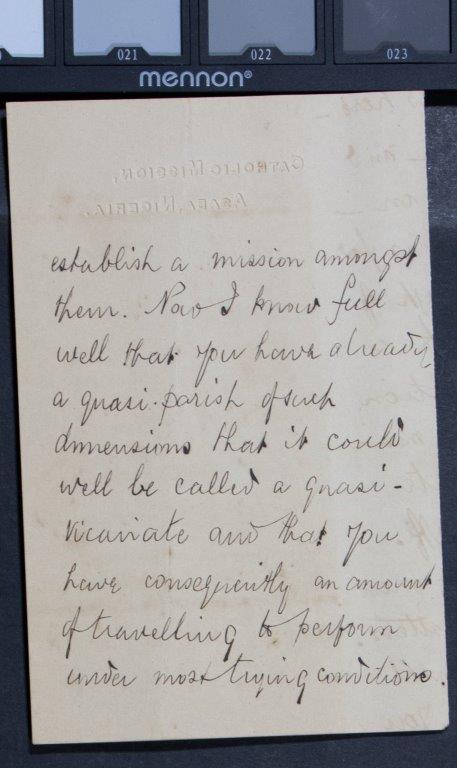 021
022
023
mennon®
CATHOLIC MISSION,
ASABA, NIGERIA.
establish a mission amongst
them. Now I know full
well that you have already
a quasi-parish of such
dimensions that it could
well be called a quasi-
vicariate and that you
have consequently an amount
of travelling to perform
under most trying conditions.